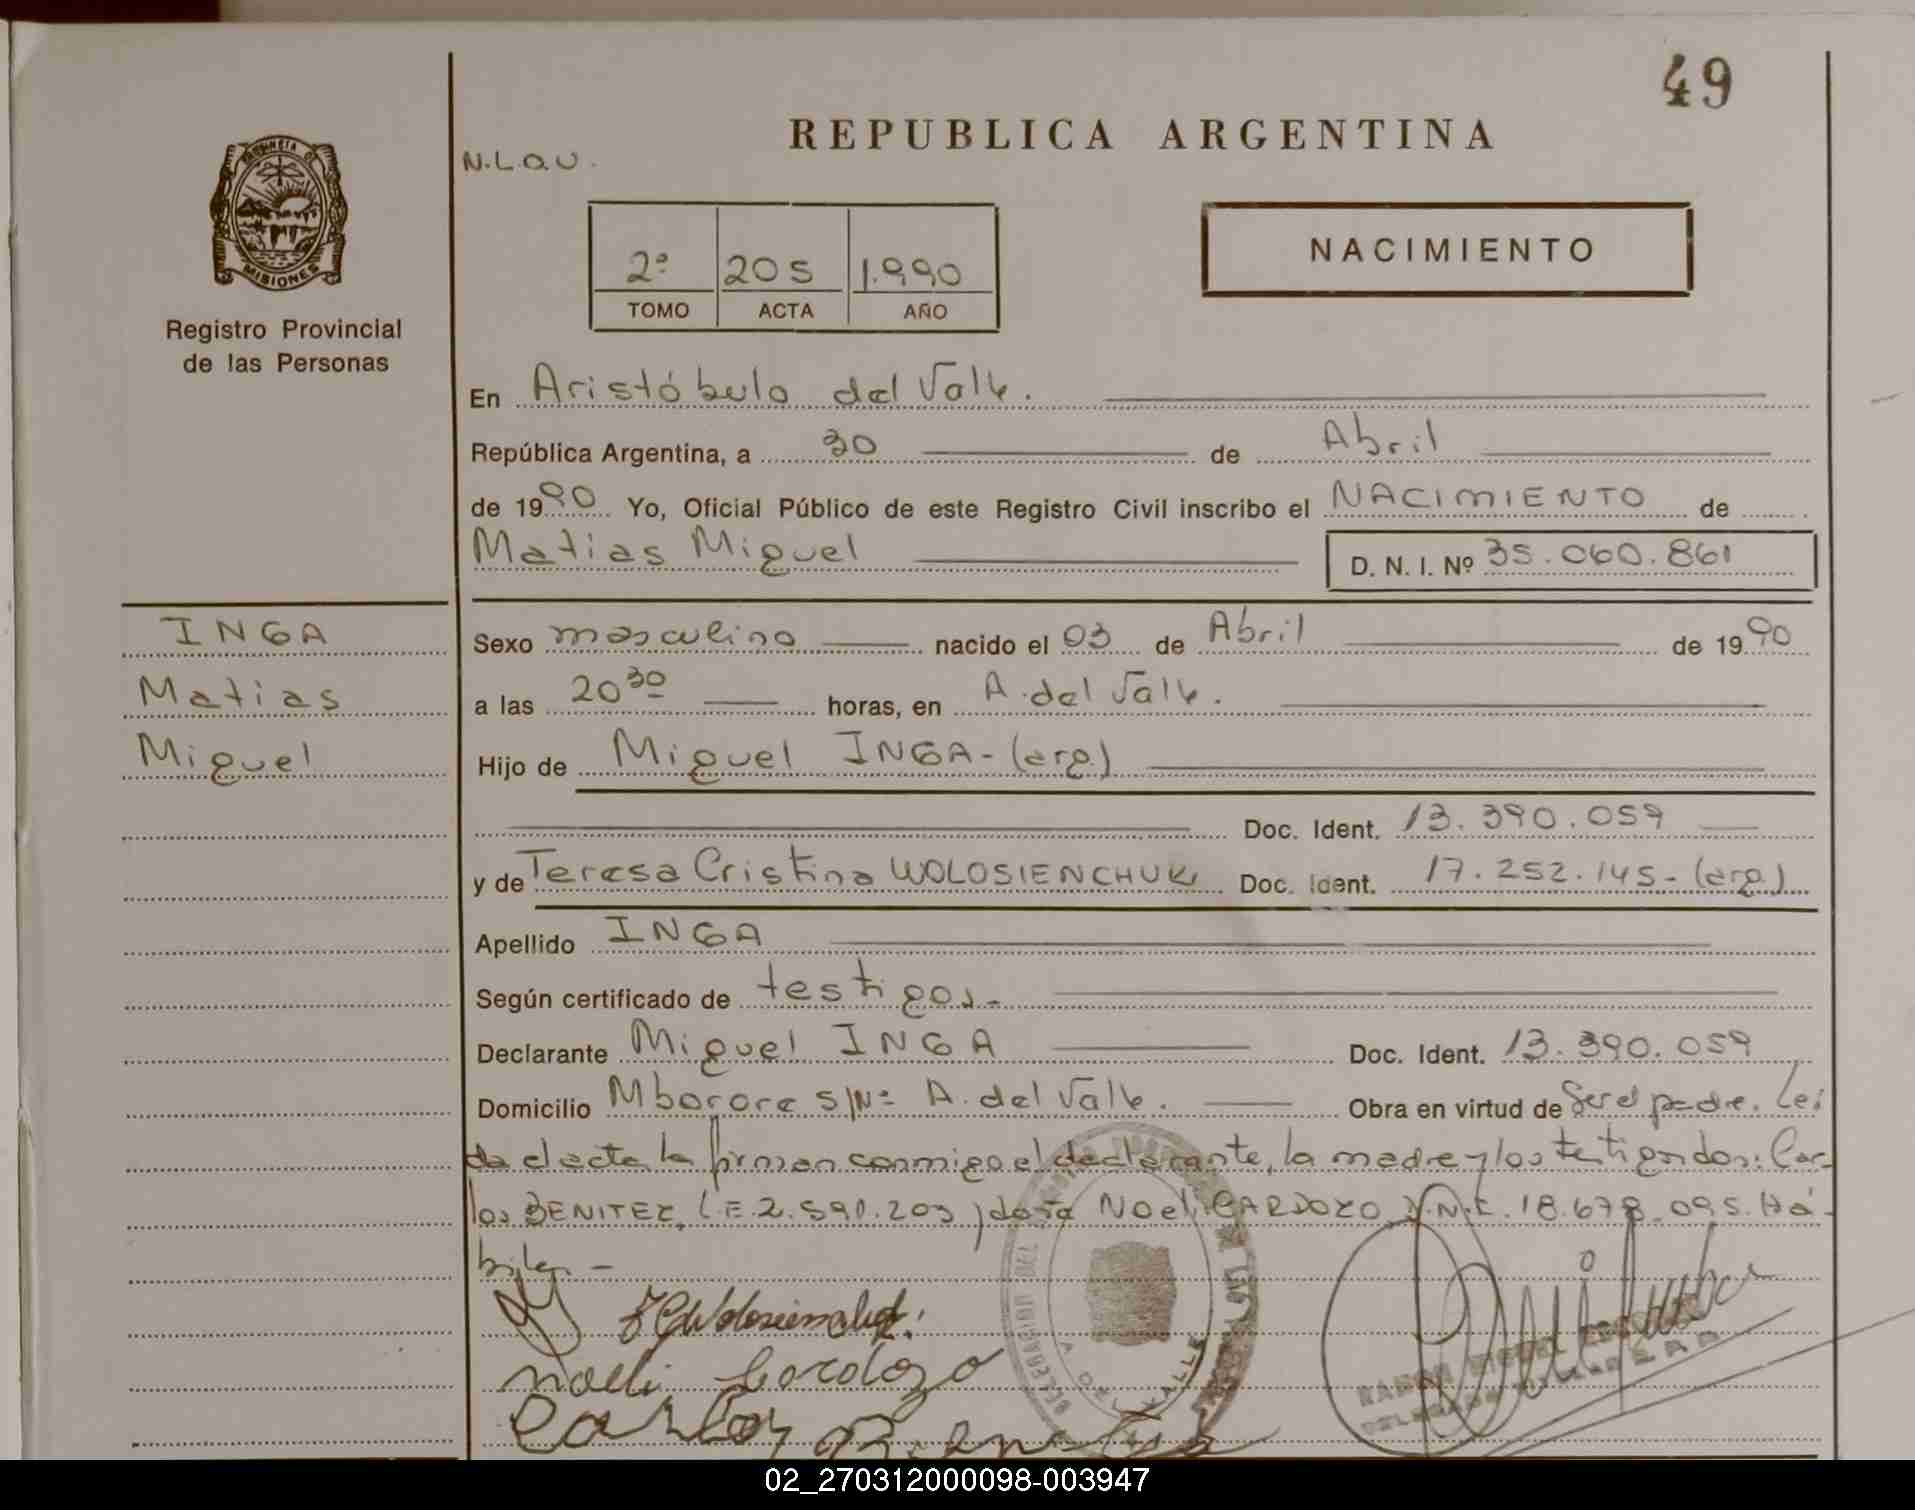 49
REPUBLICA ARGENTINA
N.L.Q.U.
PROVINCIA DE
MISIONES
Registro Provincial
de las Personas
2º 205 1.990
TOMO ACTA AÑO
NACIMIENTO
En Aristóbulo del Valle.
República Argentina, a 30 de Abril
de 1990 Yo, Oficial Público de este Registro Civil inscribo el NACIMIENTO de
Matias Miguel D. N. I. Nº 35.060.861
INGA
Matias
Miguel
Sexo masculino nacido el 03 de Abril de 1990
a las 20 30 horas, en A. del Valle.
Hijo de Miguel INGA - (arg.)
Doc. Ident. 13.390.059
y de Teresa Cristina WOLOSIENCHUK Doc. Ident. 17.252.145 - (arg.)
Apellido INGA
Según certificado de testigos.-
Declarante Miguel INGA Doc. Ident. 13.390.059
Domicilio Mborore S/Nº A. del Valle. Obra en virtud de Ser el padre. Leí
da el acta la firman conmigo el declarante, la madre y los testigos dos: Car-
los BENITEZ, L.E. 2.590.203 y doña Noeli CARDOZO D.N.I. 18.678.095. Há-
biles -
Noeli Cardozo
Carlos Benites
DELEGACION DEL
A. DEL VALLE
RAMON MIGUEL
02_270312000098-003947